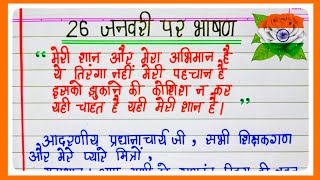 26 जनवरी पर भाषण
“ मेरी शान और मेरा अभिमान है
ये तिरंगा नहीं मेरी पहचान है
इसको झुकाने की कोशिश न कर
यही चाहत है यही मेरी शान है। ”
आदरणीय प्रधानाचार्य जी, सभी शिक्षकगण
और मेरे प्यारे मित्रों,